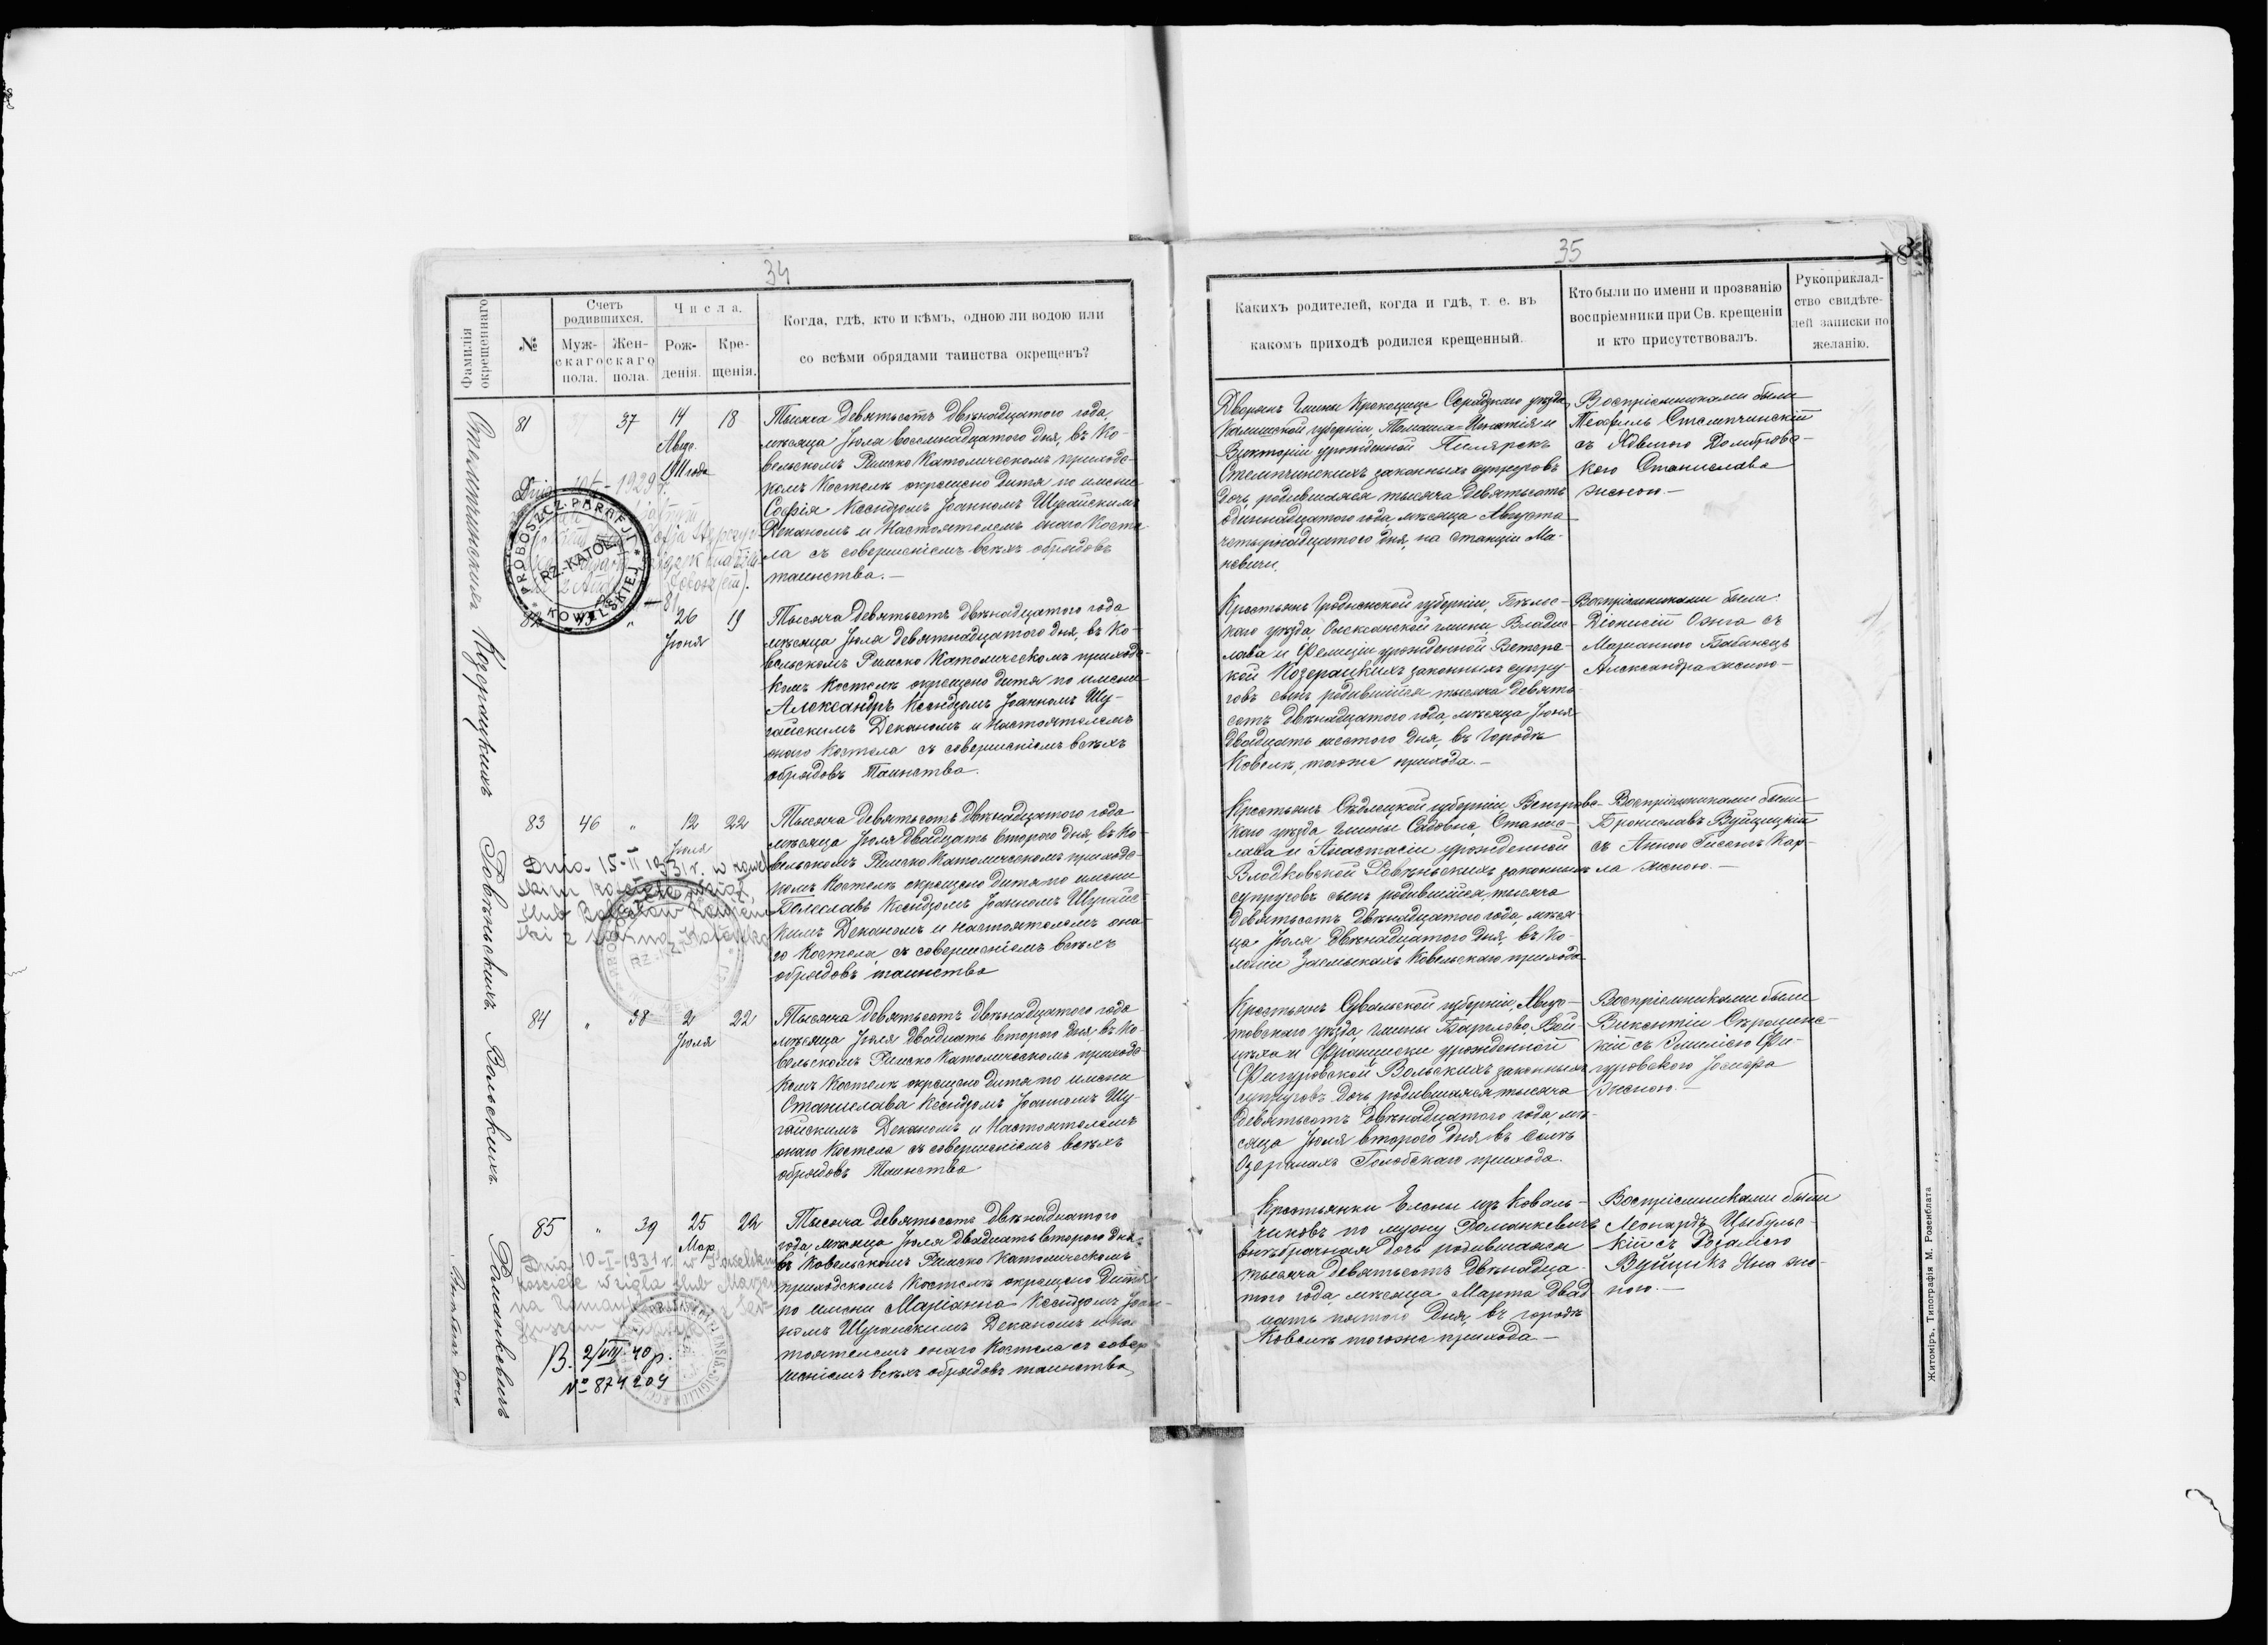 34
Фамилія окрещеннаго.
№
Счетъ родившихся.
Муж-
скаго
пола.
Жен-
скаго
пола.
Числа.
Рож-
денія.
Кре-
щенія.
Когда, гдѣ, кто и кѣмъ, одною ли водою или
со всѣми обрядами таинства окрещенъ?
81
37
14
Авгус.
1911 года
18
Тысяча девятьсотъ двѣнадцатого года,
мѣсяца Іюля восемнадцатого дня, въ Ко-
вельскомъ Римско Католическомъ приходс-
комъ Костелѣ окрещено дитя по имени
Софія Ксендзомъ Іоанномъ Шурайскимъ
Деканомъ и Настоятелемъ онаго Косте-
ла съ совершеніемъ всѣхъ обрядовъ
таинства.—
Dnia
1929 r.
PROBOSZCZ PARAFJI
RZ.-KATOL.
KOWELSKIEJ
82
"
26
Іюня
19
Тысяча девятьсотъ двѣнадцатого года
мѣсяца Іюля девятнадцатого дня, въ Ко-
вельскомъ Римско Католическомъ приходс-
комъ Костелѣ окрещено дитя по имени
Александръ Ксендзомъ Іоанномъ Шу-
райскимъ Деканомъ и Настоятелемъ
онаго Костела съ совершеніемъ всѣхъ
обрядовъ Таинства.
Козерацкихъ
83
46
"
12
Іюля
22
Тысяча девятьсотъ двѣнадцатого года
мѣсяца Іюля двадцать второго дня, въ Ко-
вельскомъ Римско Католическомъ приходс-
комъ Костелѣ окрещено дитя по имени
Болеславъ Ксендзомъ Іоанномъ Шурайс-
кимъ Деканомъ и Настоятелемъ она-
го Костела съ совершеніемъ всѣхъ
обрядовъ таинства
Dnia 15-II 1931 r. w
84
"
38
2
Іюля
22
Тысяча девятьсотъ двѣнадцатого года
мѣсяца Іюля двадцать второго дня, въ Ко-
вельскомъ Римско Католическомъ приходс-
комъ Костелѣ окрещено дитя по имени
Станислава Ксендзомъ Іоанномъ Шу-
райскимъ Деканомъ и Настоятелемъ
онаго Костела съ совершеніемъ всѣхъ
обрядовъ Таинства
Вольскихъ.
85
"
39
25
Мар.
22
Тысяча девятьсотъ двѣнадцатого
года, мѣсяца Іюля двадцать второго дня,
въ Ковельскомъ Римско Католическомъ
приходскомъ Костелѣ окрещено дитя
по имени Маріанна Ксендзомъ Іоан-
номъ Шурайскимъ Деканомъ и Нас-
тоятелемъ онаго Костела съ совер-
шеніемъ всѣхъ обрядовъ таинства,
Dnia 10-I-1931 r. w Kowelskim
kościele wzięła ślub Marjan-
na
В. 2/VIII 40 р.
№ 874209
Романкевичъ
35
Какихъ родителей, когда и гдѣ, т. е. въ
какомъ приходѣ родился крещенный.
Кто были по имени и прозванію
воспріемники при Св. крещеніи
и кто присутствовалъ.
Рукоприклад-
ство свидѣте-
лей записки по
желанію.
Дворянъ Гмины Крокощице Серадзкаго уѣзда,
Калишской губерніи Томаша-Игнатія и
Викторіи урожденной
законныхъ супруговъ
дочь, родившаяся тысяча девятьсотъ
одиннадцатого года, мѣсяца Августа
четырнадцатого дня, на станціи Ма-
невичи.
Воспріемниками были
Теофиль Стемпчинскій
съ Ядвигою Домбровс-
кого Станислава
женою.—
Крестьянъ Гродненской губерніи,
каго уѣзда, гмины, Владис-
лава и Фелиціи урожденной
Козерацкихъ законныхъ супру-
говъ сынъ, родившійся тысяча девять-
сотъ двѣнадцатого года, мѣсяца Іюня
двадцать шестого дня, въ городѣ
Ковелѣ, тогоже прихода.—
Воспріемниками были:
Діонисій Ожга съ
Маріанною Бабинецъ
Александра женою—
Крестьянъ Сѣдлецкой губерніи, Венгровс-
каго уѣзда, гмины Садовне, Станис-
лава и Анастасіи урожденной
Влодковской законныхъ
супруговъ сынъ, родившійся тысяча
девятьсотъ двѣнадцатого года, мѣся-
ца Іюля двѣнадцатого дня, въ Ко-
лоніи Ковельскаго прихода
Воспріемниками были
Брониславъ Вуйцицкій
съ Анною Гисемъ Кар-
ла женою.—
Крестьянъ Сувальской губерніи, Авгус-
товскаго уѣзда, гмины Баргловъ, Вой-
цѣха и Франциски урожденной
Фигуровской Вольскихъ законныхъ
супруговъ дочь, родившаяся тысяча
девятьсотъ двѣнадцатого года, мѣ-
сяца Іюля второго дня въ селѣ
Озеранахъ Голобскаго прихода.
Воспріемниками были
Викентій Сѣроцинс-
кій съ Эмиліею Фи-
гуровскаго Іосифа
женою.—
Крестьянки Елены изъ Коваль-
чиковъ по мужу Романкевичъ
внѣбрачная дочь, родившаяся
тысяча девятьсотъ двѣнадца-
того года, мѣсяца Марта двад-
цать пятого дня, въ городѣ
Ковелѣ тогоже прихода—
Воспріемниками были
Леонардъ Цыбульс-
кій съ Розаліею
Вуйцикъ Яна же-
ною.—
Житоміръ, Типографія М. Розенблата